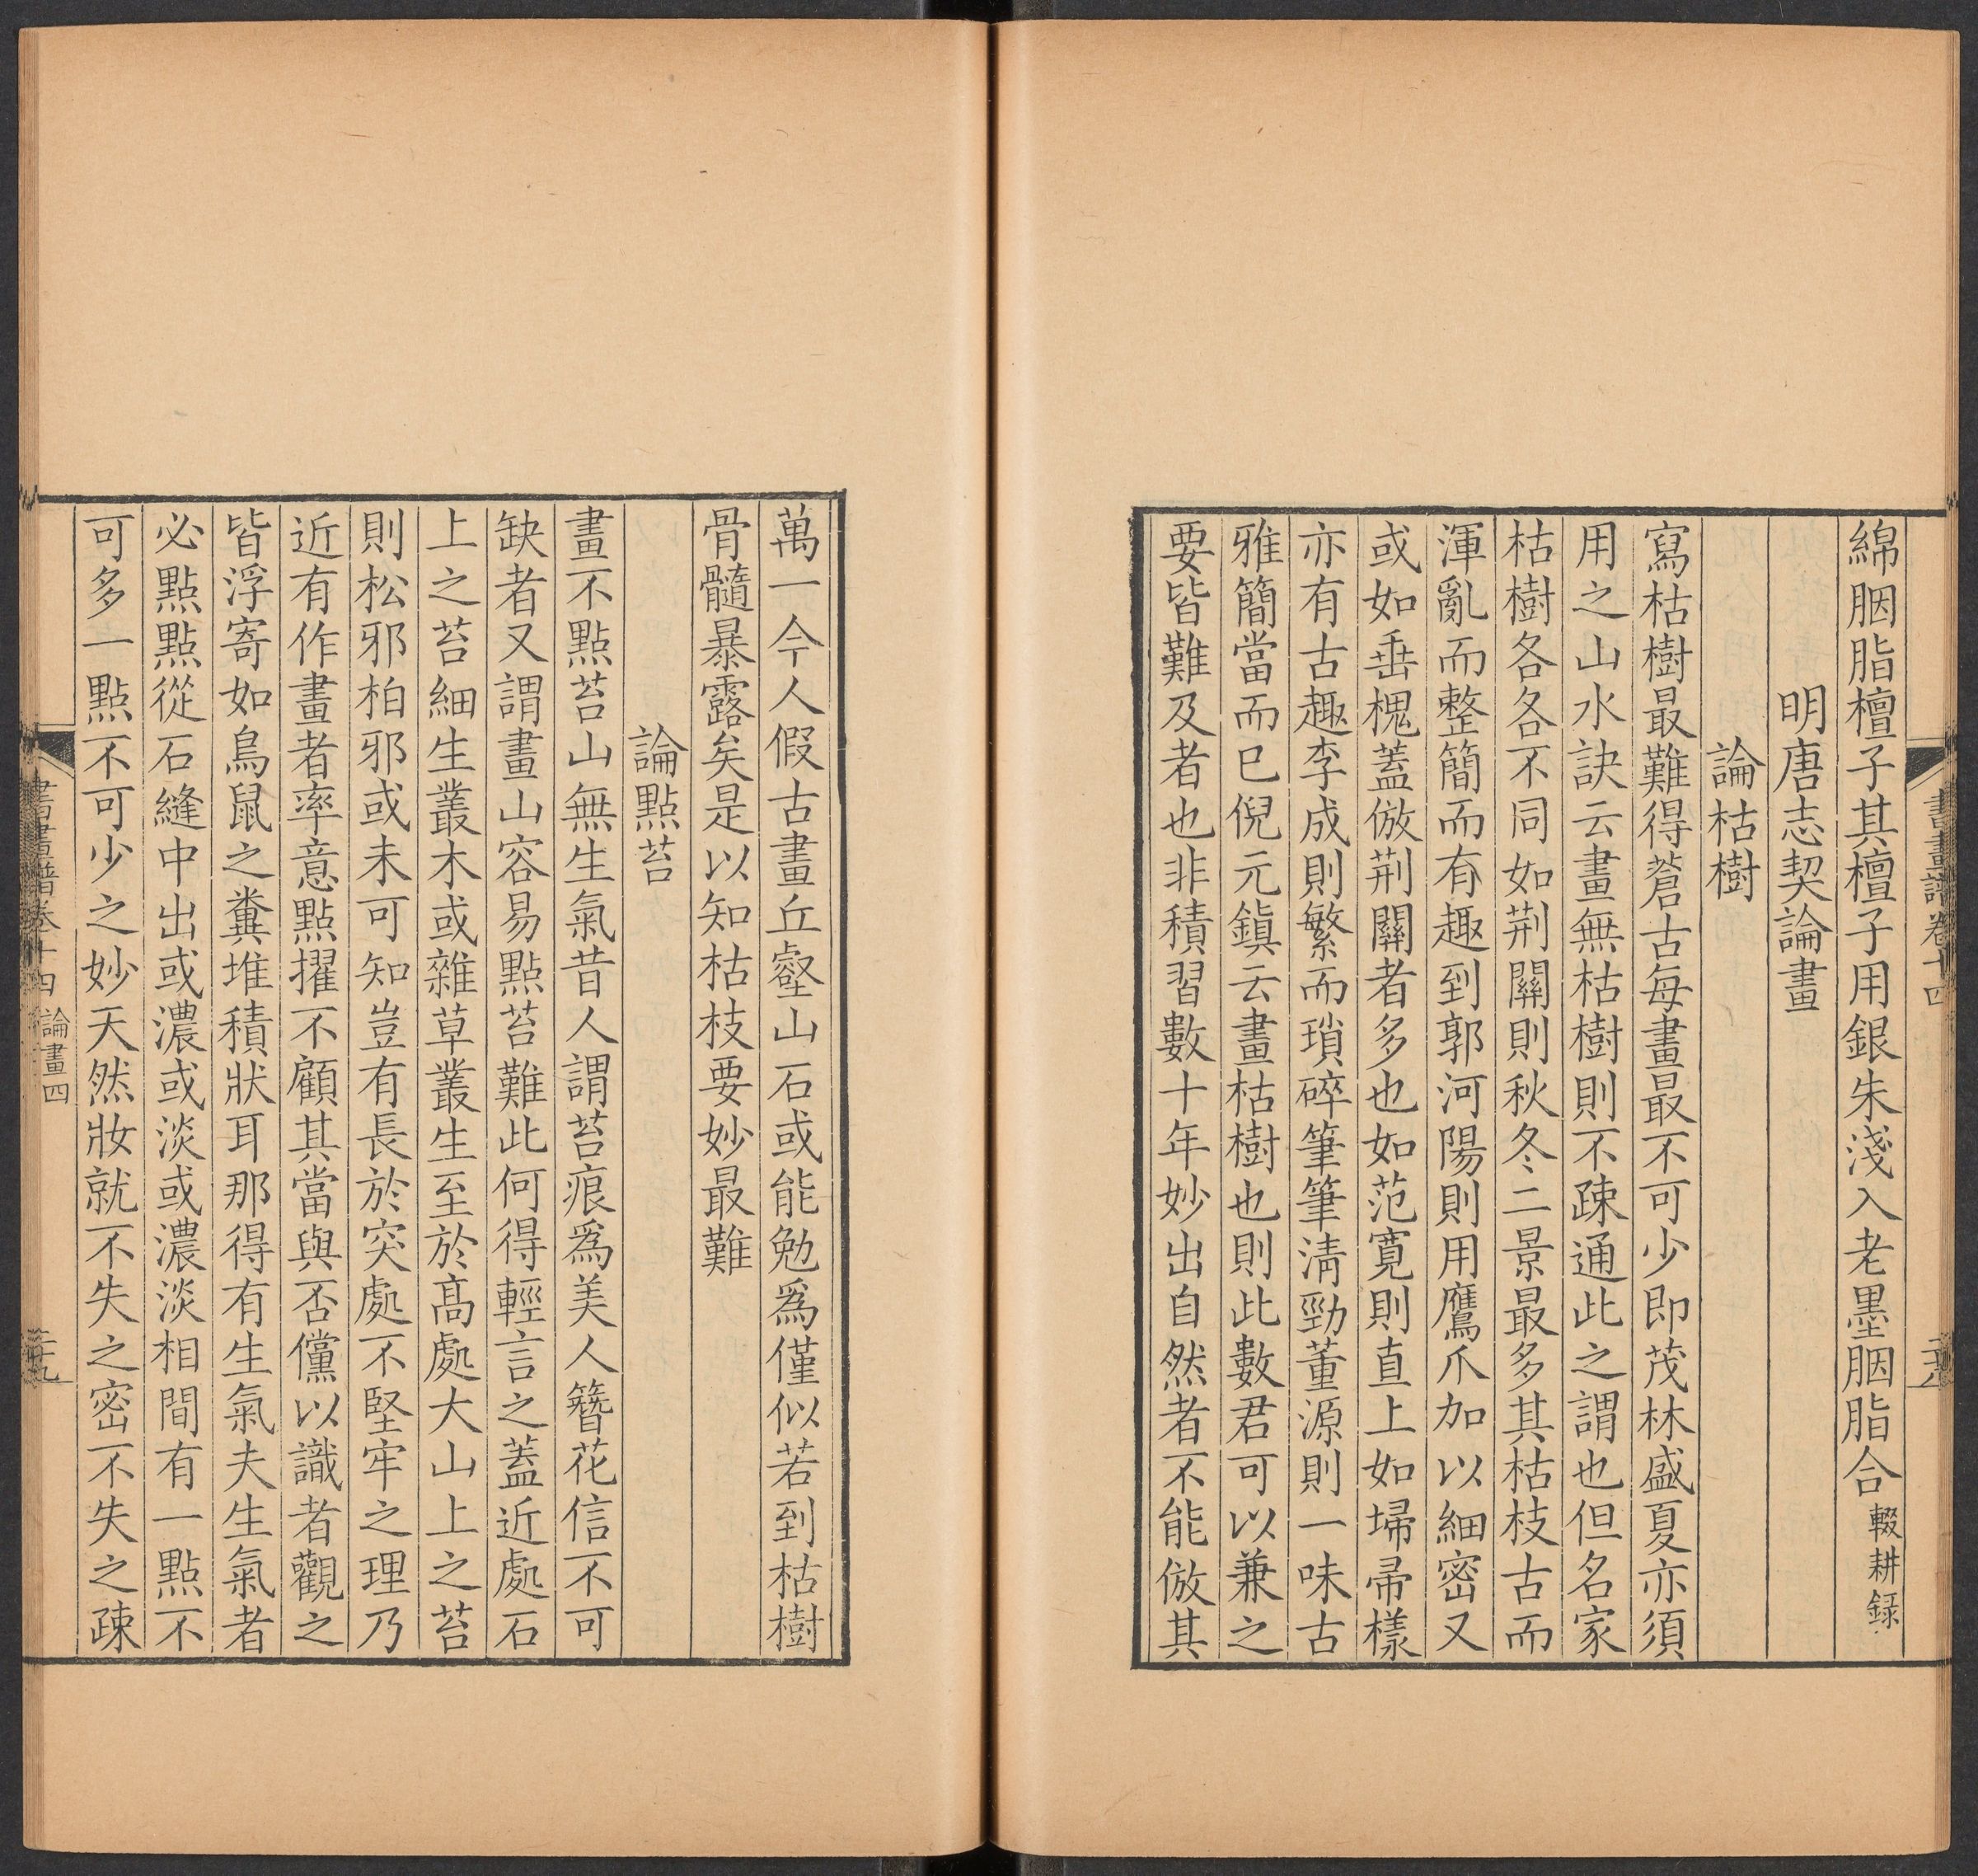 綿胭脂檀子其檀子用銀朱淺入老墨胭脂合輟耕録
明唐志契論畫
論枯樹
寫枯樹最難得蒼古每畫最不可少即茂林盛夏亦須
用之山水訣云畫無枯樹則不疎通此之謂也但名家
枯樹各各不同如荆關則秋冬二景最多其枯枝古而
渾亂而整簡而有趣到郭河陽則用鷹爪加以細密又
或如垂槐蓋倣荆關者多也如范寬則直上如埽帚樣
亦有古趣李成則繁而瑣碎筆筆清勁董源則一味古
雅簡當而已倪元鎮云畫枯樹也則此數君可以兼之
要皆難及者也非積習數十年妙出自然者不能倣其
萬一今人假古畫丘壑山石或能勉爲僅似若到枯樹
骨髓暴露矣是以知枯枝要妙最難
論點苔
畫不點苔山無生氣昔人謂苔痕爲美人簪花信不可
缺者又謂畫山容易點苔難此何得輕言之蓋近處石
上之苔細生叢木或雜草叢生至於高處大山上之苔
則松邪柏邪或未可知豈有長於突處不堅牢之理乃
近有作畫者率意點擢不顧其當與否儻以識者觀之
皆浮寄如鳥鼠之糞堆積狀耳那得有生氣夫生氣者
必點點從石縫中出或濃或淡或濃淡相間有一點不
可多一點不可少之妙天然妝就不失之密不失之疎
書畫譜卷十四 論畫四